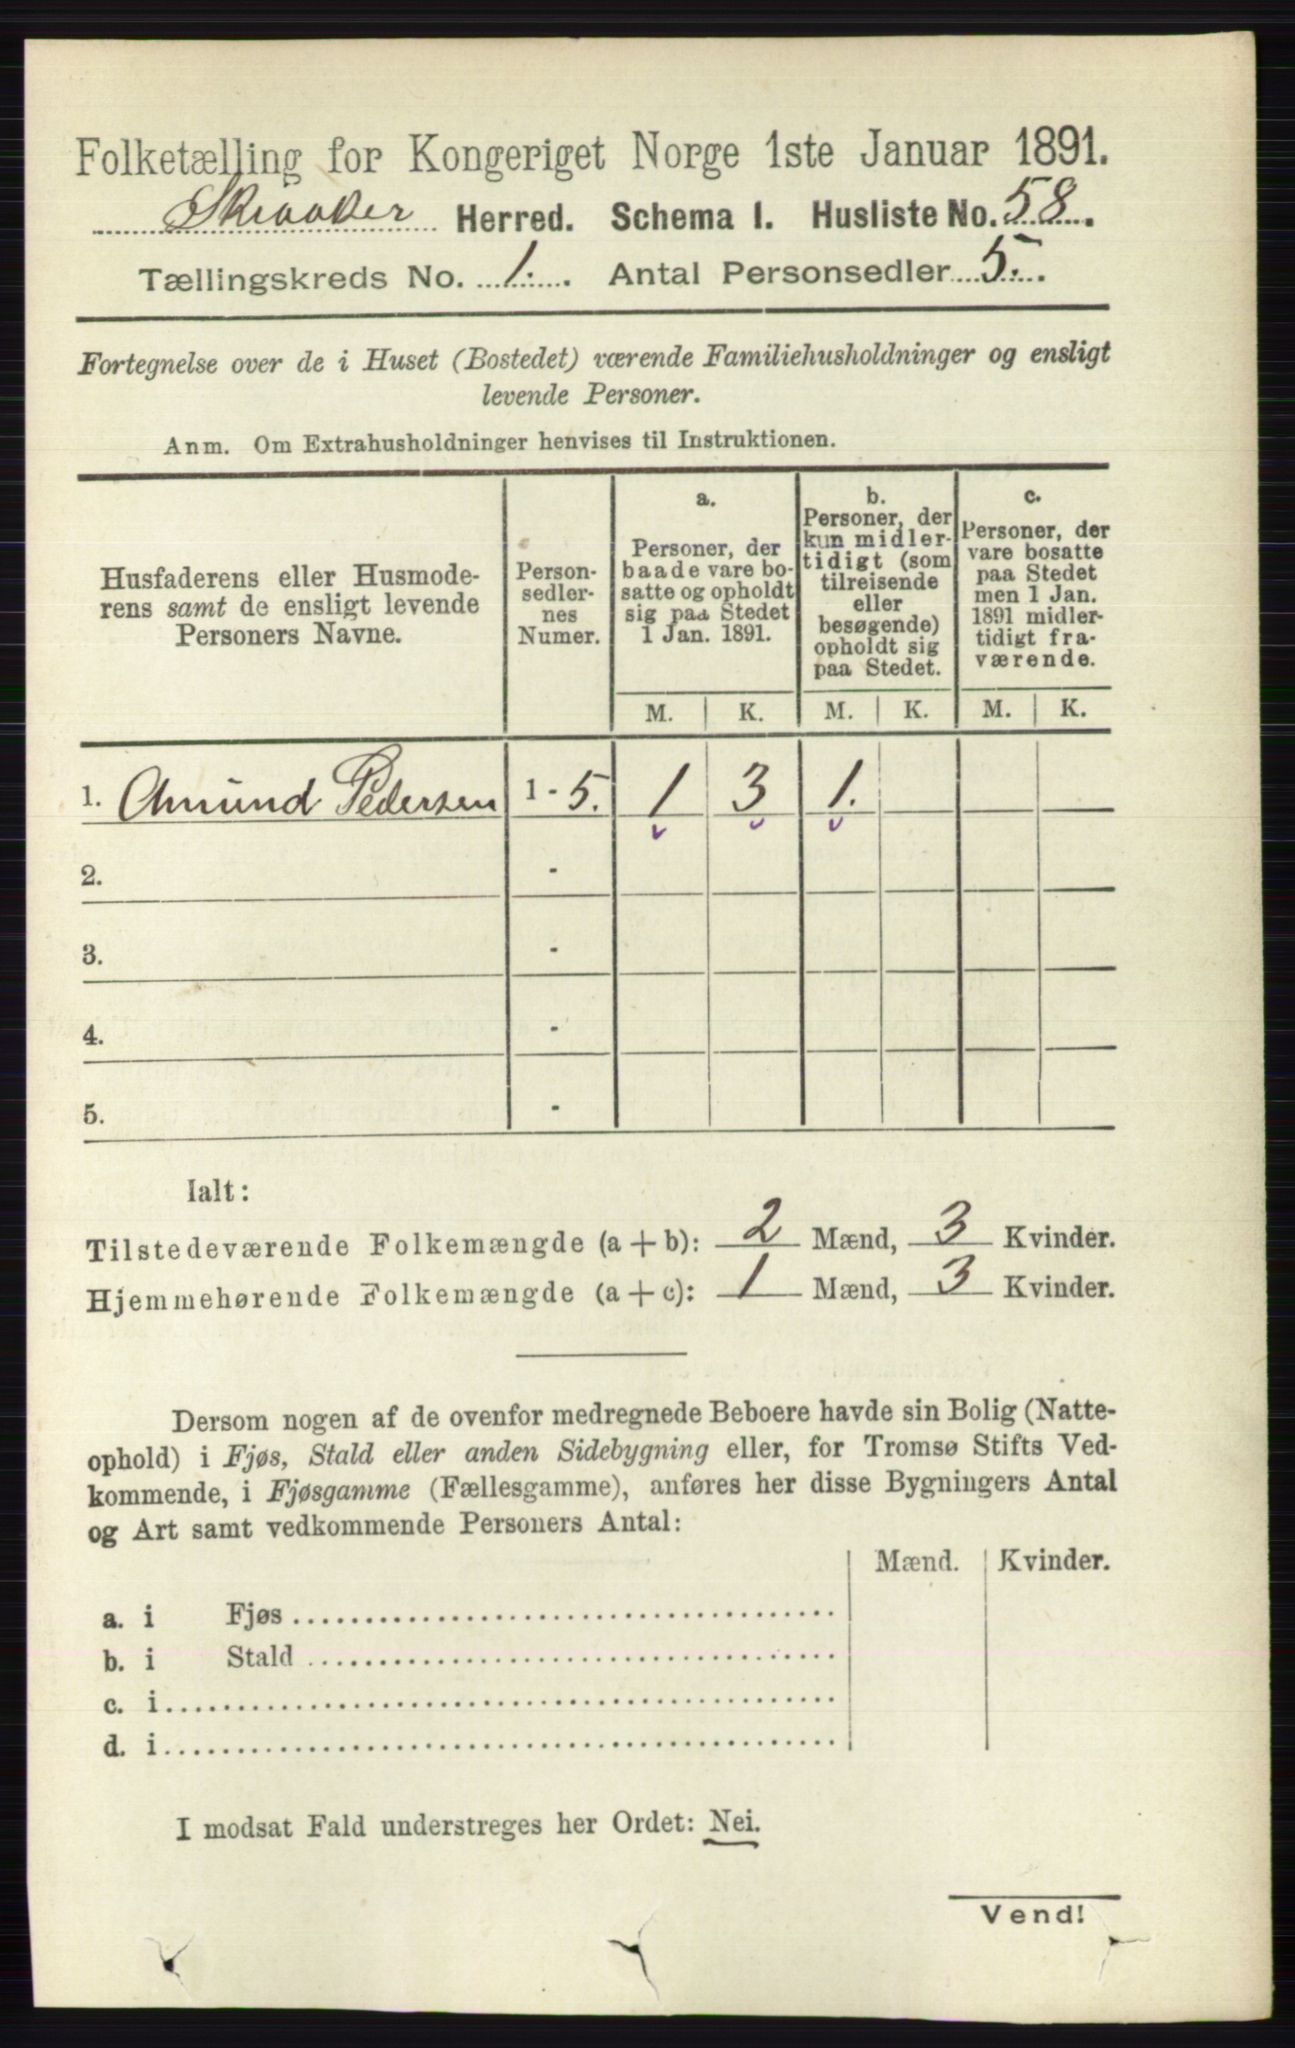 Folketælling for Kongeriget Norge 1ste Januar 1891.
Skiaaker Herred. Schema 1. Husliste No. 58.
Tællingskreds No. 1. Antal Personsedler 5.
Fortegnelse over de i Huset (Bostedet) værende Familiehusholdninger og ensligt
levende Personer.
Anm. Om Extrahusholdninger henvises til Instruktionen.
Husfaderens eller Husmode-
rens samt de ensligt levende
Personers Navne.
Person-
sedler-
nes
Numer.
a.
Personer, der
baade vare bo-
satte og opholdt
sig paa Stedet
1 Jan. 1891.
b.
Personer, der
kun midler-
tidigt (som
tilreisende
eller
besøgende)
opholdt sig
paa Stedet.
c.
Personer, der
vare bosatte
paa Stedet
men 1 Jan.
1891 midler-
tidigt fra-
værende.
M. K. M. K. M. K.
1. Amund Pedersen 1 - 5. 1 3 1.
2. -
3. -
4. -
5. -
Ialt:
Tilstedeværende Folkemængde (a + b): 2 Mænd, 3 Kvinder.
Hjemmehørende Folkemængde (a + c): 1 Mænd, 3 Kvinder.
Dersom nogen af de ovenfor medregnede Beboere havde sin Bolig (Natte-
ophold) i Fjøs, Stald eller anden Sidebygning eller, for Tromsø Stifts Ved-
kommende, i Fjøsgamme (Fællesgamme), anføres her disse Bygningers Antal
og Art samt vedkommende Personers Antal:
Mænd. Kvinder.
a. i Fjøs
b. i Stald
c. i
d. i
I modsat Fald understreges her Ordet: Nei.
Vend!